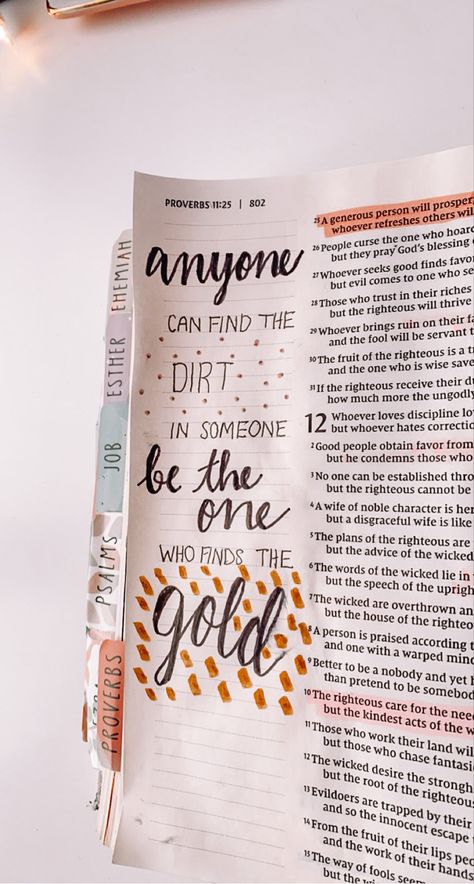 PROVERBS 11:25 | 802
anyone
CAN FIND THE
DIRT
IN SOMEONE
be the
one
WHO FINDS THE
gold
EHEMIAH
ESTHER
JOB
PSALMS
PROVERBS
25 A generous person will prosper;
whoever refreshes others
26 People curse the one who
but they pray God's blessing
27 Whoever seeks good finds
but evil comes to one who
28 Those who trust in their riches
but the righteous will thrive
29 Whoever brings ruin on their
and the fool will be servant
30 The fruit of the righteous is a
and the one who is wise
31 If the righteous receive their
how much more the ungodly
12 Whoever loves discipline
but whoever hates
2 Good people obtain favor from
but he condemns those who
3 No one can be established
but the righteous cannot be
4 A wife of noble character is
but a disgraceful wife is like
5 The plans of the righteous are
but the advice of the wicked
6 The words of the wicked lie in
but the speech of the
7 The wicked are overthrown
but the house of the
8 A person is praised according
and one with a warped
9 Better to be a nobody and yet
than pretend to be
10 The righteous care for the
but the kindest acts of the
11 Those who work their land will
but those who chase
12 The wicked desire the
but the root of the
13 Evildoers are trapped by their
and so the innocent escape
14 From the fruit of their lips
and the work of their hands
15 The way of fools
but the